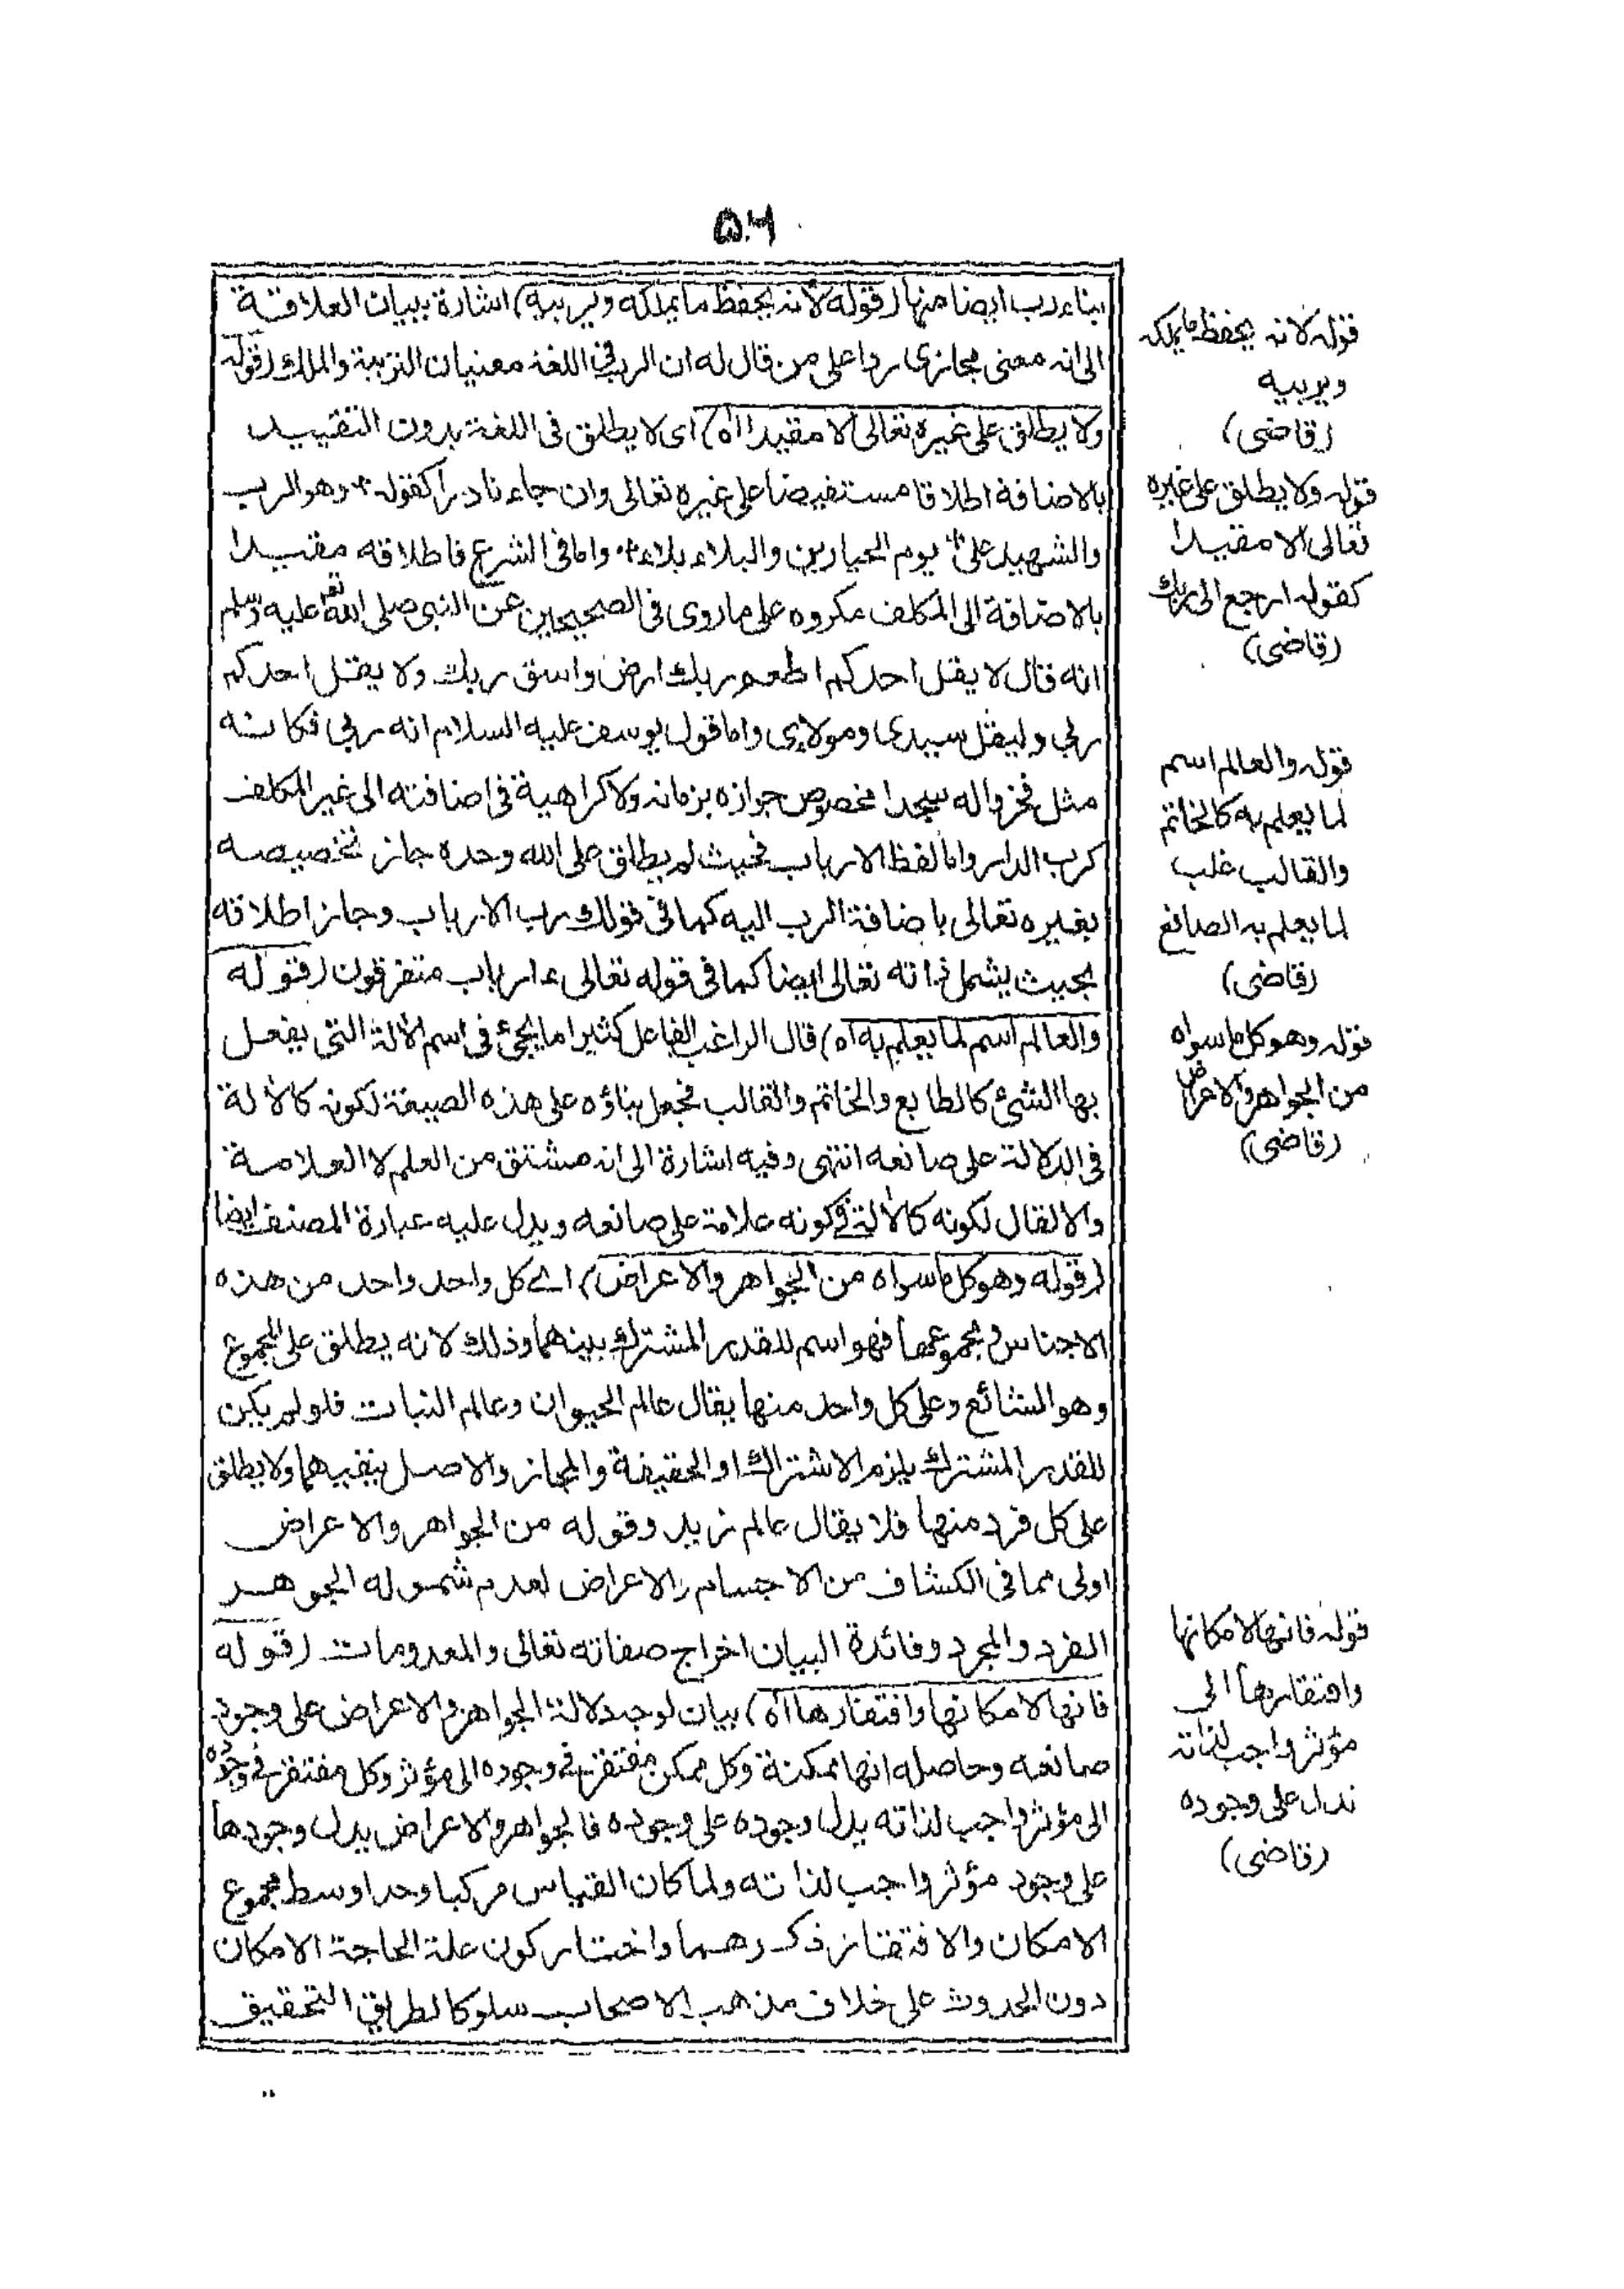 ۵۰۶
بناء رب ايضا منها (قوله لانه يحفظ ما يملكه ويربيه) اشارة ببيان العلاقة
الى انه معنى مجازى ردا على من قال له ان الرب فى اللغة معنيان التربية والملك (قوله
ولا يطلق على غيره تعالى الا مقيدا اه) اى لا يطلق فى اللغة بدون التقييد
بالاضافة اطلاقا مستفيضا على غيره تعالى وان جاء نادرا كقوله ؞ وهو الرب
والشهيد على ؞ يوم الحيارين والبلاء بلاء ؞ واما فى الشرع فاطلاقه مقيدا
بالاضافة الى المكلف مكروه على ما روى فى الصحيحين عن النبى صلى الله تعـ عليه وسلم
انه قال لا يقل احدكم اطعم ربك ارض واسق ربك ولا يقل احدكم
ربى وليقل سيدى ومولاى واما قول يوسف عليه السلام انه ربى فكانه
مثل فخروا له سجدا مخصوص جوازه بزمانه ولا كراهية فى اضافته الى غير المكلف
كرب الدار واما لفظ الارباب فحيث لم يطلق على الله وحده جاز تخصيصه
بغيره تعالى باضافة الرب اليه كما فى قولك رب الارباب وجاز اطلاقه
بحيث يشمل ذاته تعالى ايضا كما فى قوله تعالى ءارباب متفرقون (قوله
والعالم اسم لما يعلم به اه) قال الراغب الفاعل كثيرا ما يجئ فى اسم الالة التى يفعل
بها الشئ كالطابع والخاتم والقالب فجعل بناؤه على هذه الصيغة لكونه كالالة
فى الدلالة على صانعه انتهى وفيه اشارة الى انه مشتق من العلم لا العلامة
والا لقال لكونه كالالة فى كونه علامة على صانعه ويدل عليه عبارة المصنف ايضا
(قوله وهو كل ما سواه من الجواهر والاعراض) اے كل واحد واحد من هذه
الاجناس ومجموعها فهو اسم للقدر المشترك بينهما وذلك لانه يطلق على المجموع
وهو الشائع وعلى كل واحد منها يقال عالم الحيوان وعالم النبات فلو لم يكن
للقدر المشترك يلزم الاشتراك او الحقيقة والمجاز والاصل ينفيهما ولا يطلق
على كل فرد منها فلا يقال عالم زيد وقوله من الجواهر والاعراض
اولى مما فى الكشاف من الاجسام والاعراض لعدم شموله الجوهر
الفرد والمجرد وفائدة البيان اخراج صفاته تعالى والمعدومات (قوله
فانها لامكانها وافتقارها اه) بيان لوجه دلالة الجواهر والاعراض على وجود
صانعه وحاصله انها ممكنة وكل ممكن مفتقر فى وجوده الى مؤثر وكل مفتقر فى وجوده
الى مؤثر واجب لذاته يدل وجوده على وجوده فالجواهر والاعراض يدل وجودها
على وجود مؤثر واجب لذاته ولما كان القياس مركبا وحد اوسط مجموع
الامكان والافتقار ذكرهما واختار كون علة الحاجة الامكان
دون الحدوث على خلاف مذهب الاصحاب سلوكا لطريق التحقيق
قوله لانه يحفظ ما يملكه
ويربيه
(قاضى)
قوله ولا يطلق على غيره
تعالى الا مقيدا
كقوله ارجع الى ربك
(قاضى)
قوله والعالم اسم
لما يعلم به كالخاتم
والقالب غلب
لما يعلم به الصانع
(قاضى)
قوله وهو كل ما سواه
من الجواهر والاعراض
(قاضى)
قوله فانها لامكانها
وافتقارها الى
مؤثر واجب لذاته
تدل على وجوده
(قاضى)